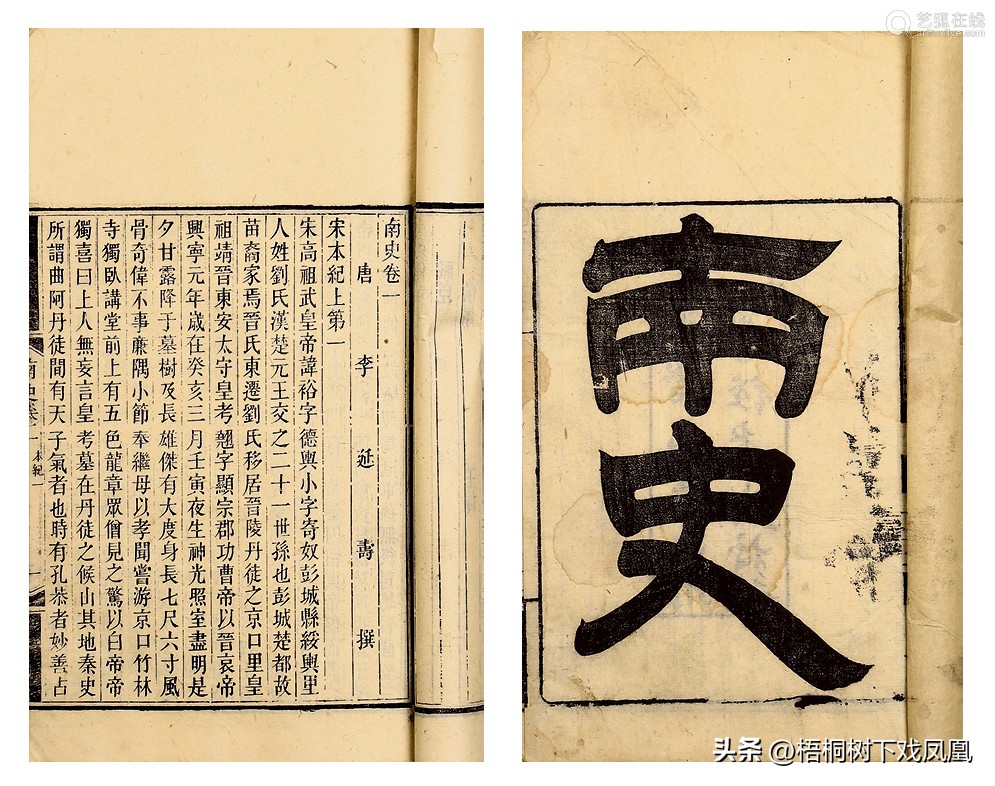 南史卷一
唐 李延壽 撰
宋本紀上第一
宋高祖武皇帝諱裕字德輿小字寄奴彭城縣綏輿里
人姓劉氏漢楚元王交之二十一世孫也彭城楚都故
苗裔家焉晉氏東遷劉氏移居晉陵丹徒之京口里皇
祖靖晉東安太守皇考翹字顯宗郡功曹帝以晉哀帝
興寧元年歲在癸亥三月壬寅夜生神光照室盡明是
夕甘露降于墓樹及長雄傑有大度身長七尺六寸風
骨奇偉不事廉隅小節奉繼母以孝聞嘗游京口竹林
寺獨臥講堂前上有五色龍章眾僧見之驚以白帝帝
獨喜曰上人無妄言皇考墓在丹徒之候山其地秦史
所謂曲阿丹徒間有天子氣者也時有孔恭者妙善占
南史
艺狐在线
头条 @梧桐树下戏凤凰